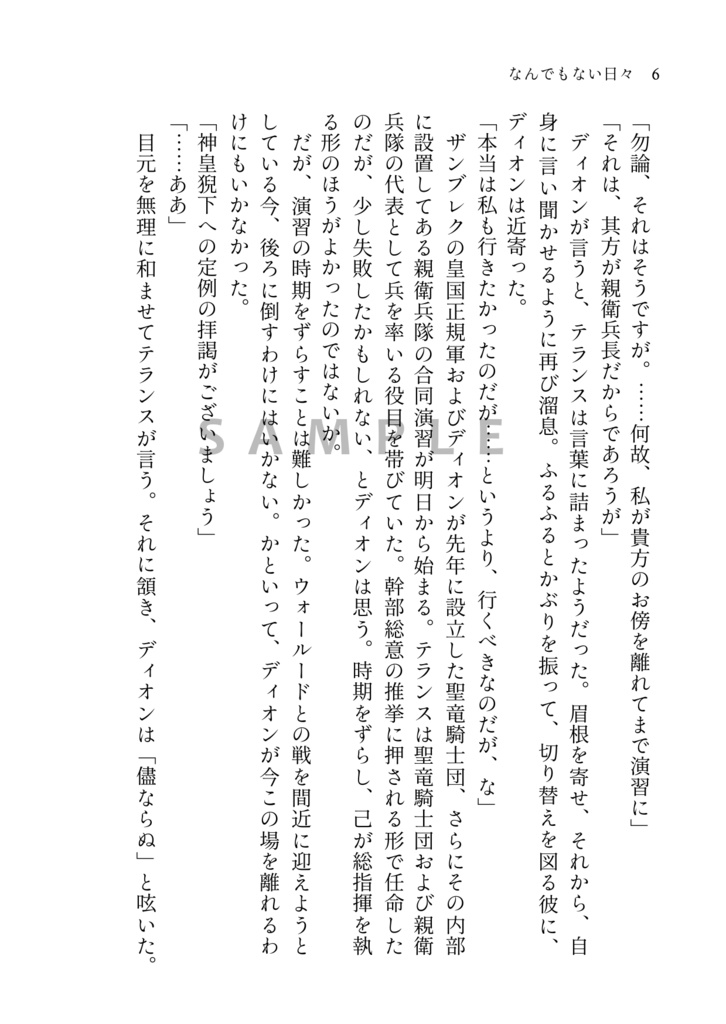 なんでもない日々 6
「勿論、それはそうですが。……何故、私が貴方のお傍を離れてまで演習に」
「それは、其方が親衛兵長だからであろうが」
ディオンが言うと、テランスは言葉に詰まったようだった。眉根を寄せ、それから、自
身に言い聞かせるように再び溜息。ふるふるとかぶりを振って、切り替えを図る彼に、
ディオンは近寄った。
「本当は私も行きたかったのだが……というより、行くべきなのだが、な」
ザンブレクの皇国正規軍およびディオンが先年に設立した聖竜騎士団、さらにその内部
に設置してある親衛兵隊の合同演習が明日から始まる。テランスは聖竜騎士団および親衛
兵隊の代表として兵を率いる役目を帯びていた。幹部総意の推挙に押される形で任命した
のだが、少し失敗したかもしれない、とディオンは思う。時期をずらし、己が総指揮を執
る形のほうがよかったのではないか。
だが、演習の時期をずらすことは難しかった。ウォールードとの戦を間近に迎えようと
している今、後ろに倒すわけにはいかない。かといって、ディオンが今この場を離れるわ
けにもいかなかった。
「神皇猊下への定例の拝謁がございましょう」
「……ああ」
目元を無理に和ませてテランスが言う。それに頷き、ディオンは「儘ならぬ」と呟いた。
SAMPLE